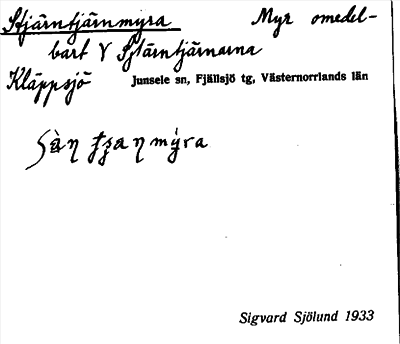 Stjärntjärnmyra Myr omedel-
bart V Stjärntjärnarna
Kläppsjö Junsele sn, Fjällsjö tg, Västernorrlands län
Sigvard Sjölund 1933